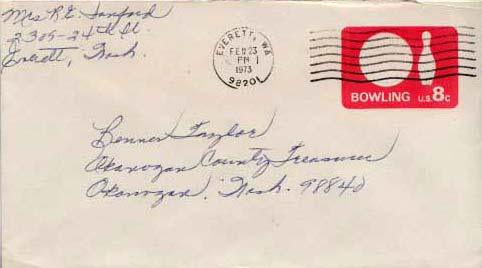 Mrs R.E. Sanford
2305-24th St.
Everett, Wash.
EVERETT, WA
FEB 23
PM
1973
98201
BOWLING U.S. 8c
Benner Taylor
Okanogan County Treasurer
Okanogan, Wash. 98840